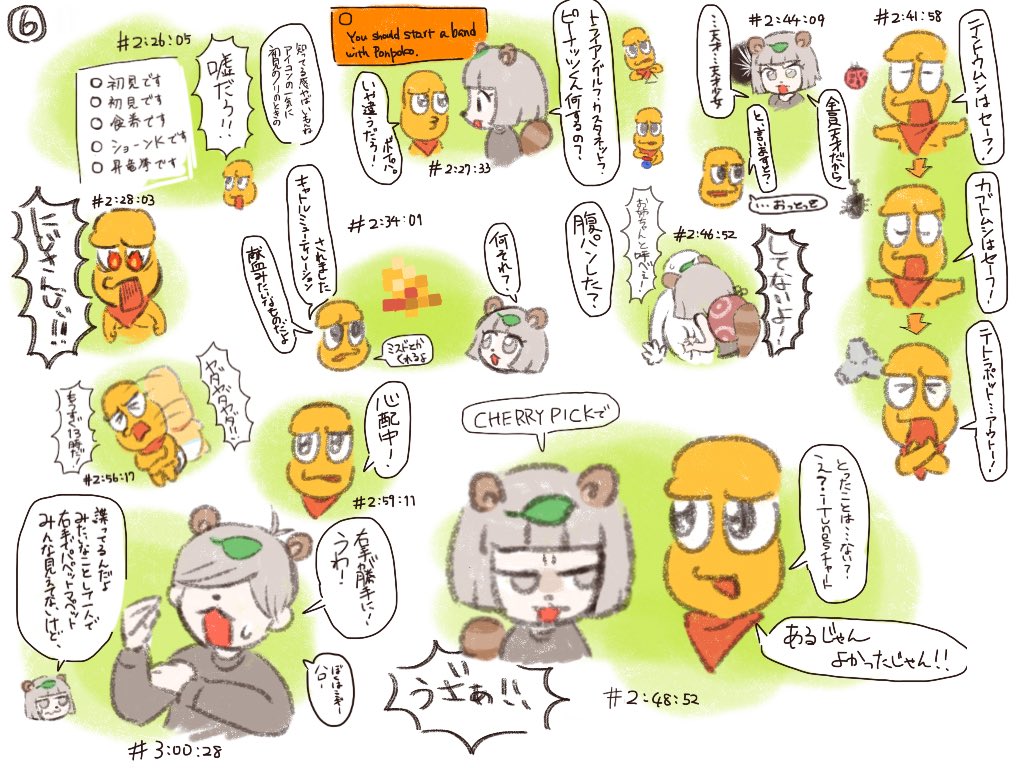 ⑥
#2:26:05
知ってる感やばいもんね
アイコンの一気に
初見のノリのときの
嘘だろ!!
初見です
初見です
食券です
ショーンKです
昇竜拳です
#2:28:03
にじさんじ!!!
You should start a band
with Ponpoko.
トライアングル?カスタネット?
ピーナッツくん何するの?
いや違うだろ!
ポポパ
#2:27:33
#2:34:09
何それ?
キャトルミューティレーション
されきた
献血みたいなものだよ
ミスドとか
くれるよ
#2:44:09
…天才…天才少女
全員天才だから
と、言いますと?
…おっとっと
#2:41:58
テントウムシはセーフ!
カブトムシはセーフ!
テトラポッド…アウトー!
#2:46:52
腹パンした?
お姉ちゃんと呼べぇ!
してないよ!
ヤダヤダヤダ!!
もうすぐ13時だ!
#2:56:17
心配中!
#2:59:11
CHERRY PICKで
とったことは…ない?
え?iTunesチャート
あるじゃん
よかったじゃん!!
うざぁ!!
#2:48:52
うわ!
右手が勝手に!
喋ってるんだよ
みたいなことして一人で
右手でパペットマペット
みんな見えてないけど、
#3:00:28